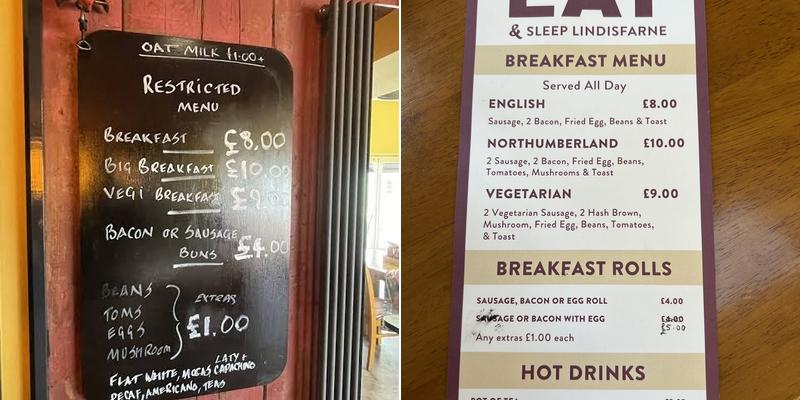 OAT MILK £1.00+
RESTRICTED
MENU
BREAKFAST £8.00
BIG BREAKFAST £10.00
VEGI BREAKFAST £9.00
BACON OR SAUSAGE
BUNS £4.00
BEANS
TOMS
EGGS
MUSHROOM
EXTRAS
£1.00
LATY +
FLAT WHITE, MOCAS CAPACHINO
DECAF, AMERICANO, TEAS
EAT
& SLEEP LINDISFARNE
BREAKFAST MENU
Served All Day
ENGLISH £8.00
Sausage, 2 Bacon, Fried Egg, Beans & Toast
NORTHUMBERLAND £10.00
2 Sausage, 2 Bacon, Fried Egg, Beans,
Tomatoes, Mushrooms & Toast
VEGETARIAN £9.00
2 Vegetarian Sausage, 2 Hash Brown,
Mushroom, Fried Egg, Beans, Tomatoes,
& Toast
BREAKFAST ROLLS
SAUSAGE, BACON OR EGG ROLL £4.00
SAUSAGE OR BACON WITH EGG £4.00
£5.00
Any extras £1.00 each
HOT DRINKS